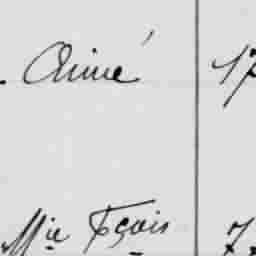 Aimé 17
Mie Fçois 7